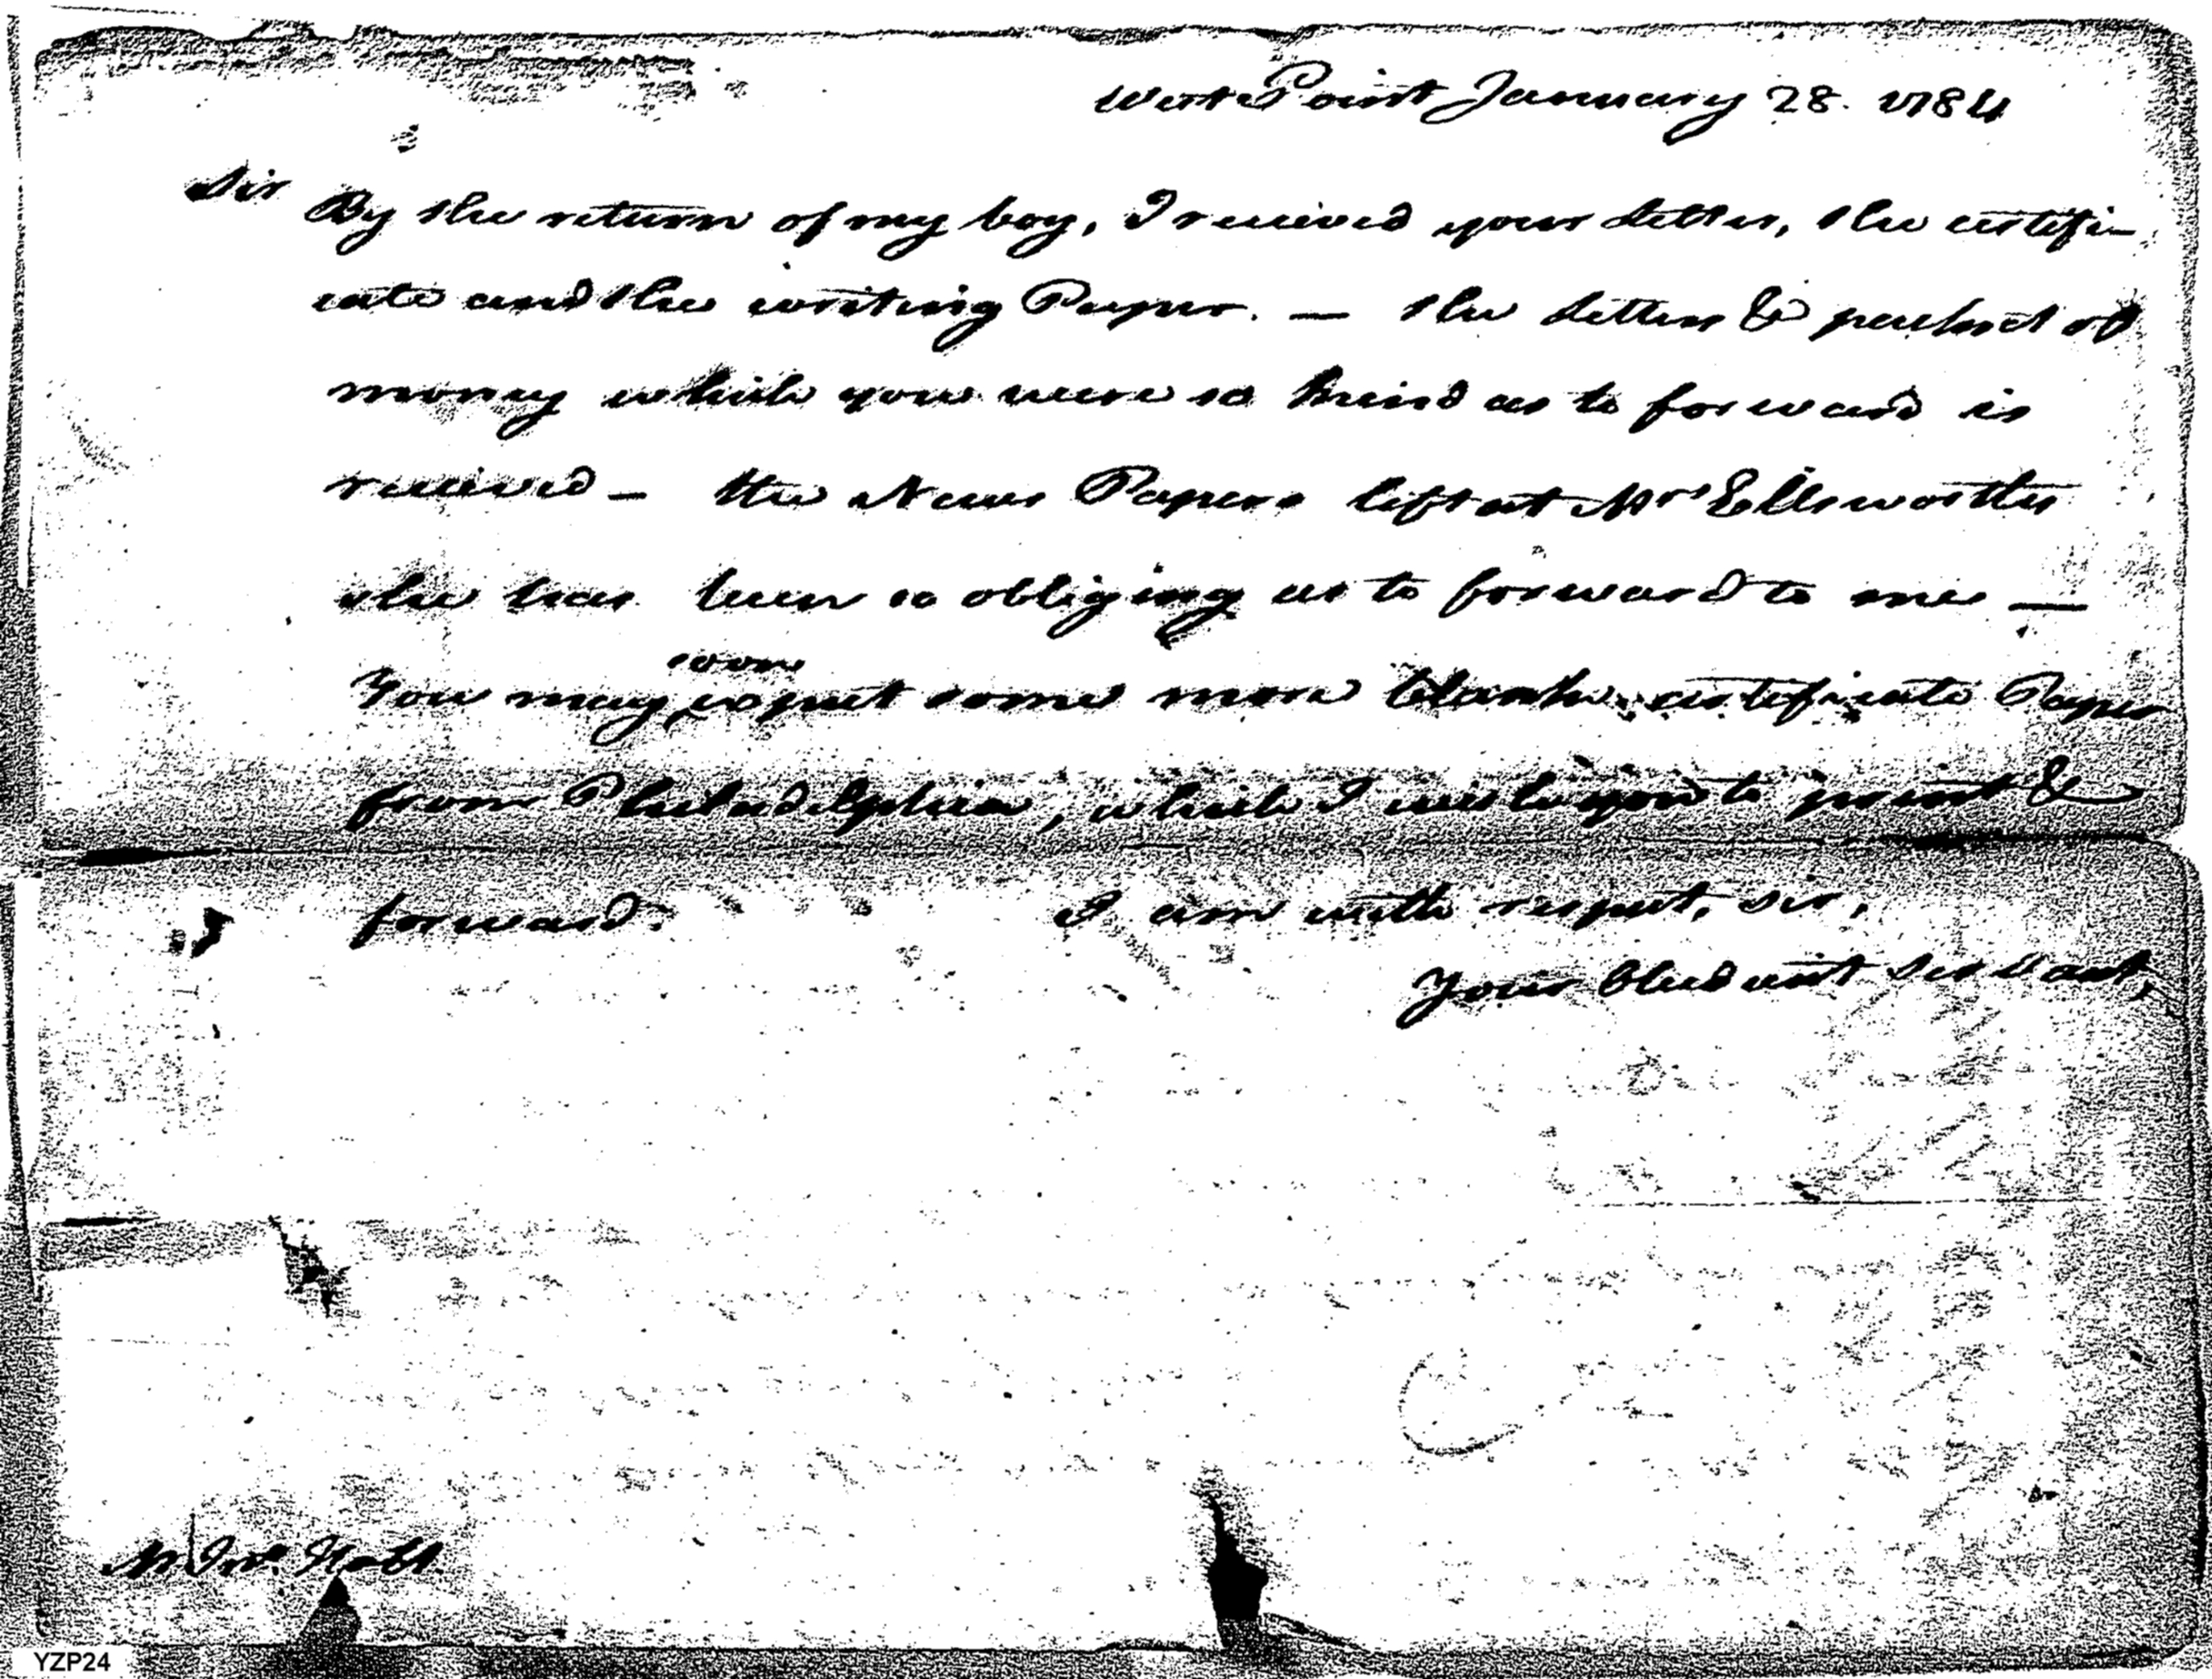 West Point January 28. 1784
Sir
By the return of my boy, I received your Letter, the certifi-
cate and the writing Paper. — the Letters & packet of
money which you were so kind as to forward is
received — the News Papers left at Mrs Ellsworths
she has been so obliging as to forward to me —
soon
You may expect some more blank certificate Paper
from Philadelphia, which I wish you to print &
forward. I am with respect, sir,
Your Obedient Servant,
Mr. Jno. Holt
YZP24